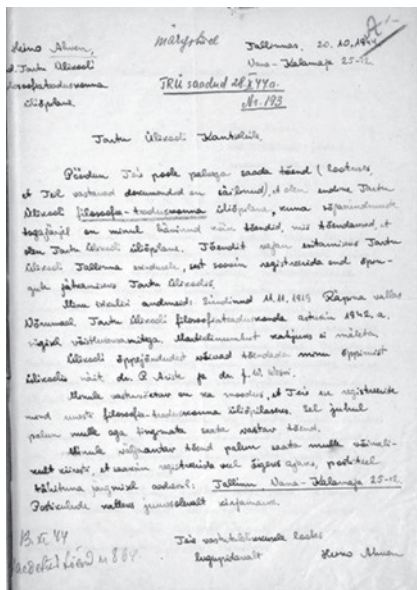 märgukiri
Heino Ahven, Tallinnas, 20.10.1944
Tartu Ülikooli Vana-Kalamaja 25-12.
filosoofiateaduskonna
üliõpilane
TRÜ saadud 28.X 44 a.
Nr. 193
Tartu Ülikooli Kantseleile
Pöördun Teie poole palvega saada tõend (lootuses,
et Teil vastavad dokumendid on säilinud), et olen endine Tartu
Ülikooli filosoofia-teaduskonna üliõpilane, kuna sõjasündmuste
tagajärjel on minul hävinud kõik tõendid, mis tõendavad, et
olen Tartu ülikooli üliõpilane. Tõendit vajan esitamiseks Tartu
Ülikooli Tallinna esindusele, sest soovin registreerida end õpin-
gute jätkamiseks Tartu Ülikoolis.
Minu isikulisi andmeid: Sündinud 11.11.1919 Rapina vallas
Tartu Ülikooli filosoofiateaduskonda astusin 1942. a.
sügisel Matriklinumbrit kahjuks ei mäleta.
Ülikooli õppejõududest võivad tõendada minu õppimist
ülikoolis näit. dr. P. Ariste ja dr. J. V. Veski.
Minule vastuvõetav on ka moodus, et Teie ise registreerite
mind uuesti filosoofia-teaduskonna üliõpilaseks. Sel juhul
palun mulle aga tingimata saata vastav tõend.
Minule väljaantav tõend palun saata mulle võimali-
kult kiiresti, et saaksin registreerida veel õigeks ajaks, postiteel
tähituna järgmisel aadressil: Tallinn Vana-Kalamaja 25-12.
Postikulude katteks juuresolevalt kirjamarke.
Teie vastutulelikkusele lootes
lugupidavalt Heino Ahven
13. XI 44
tõend n 864